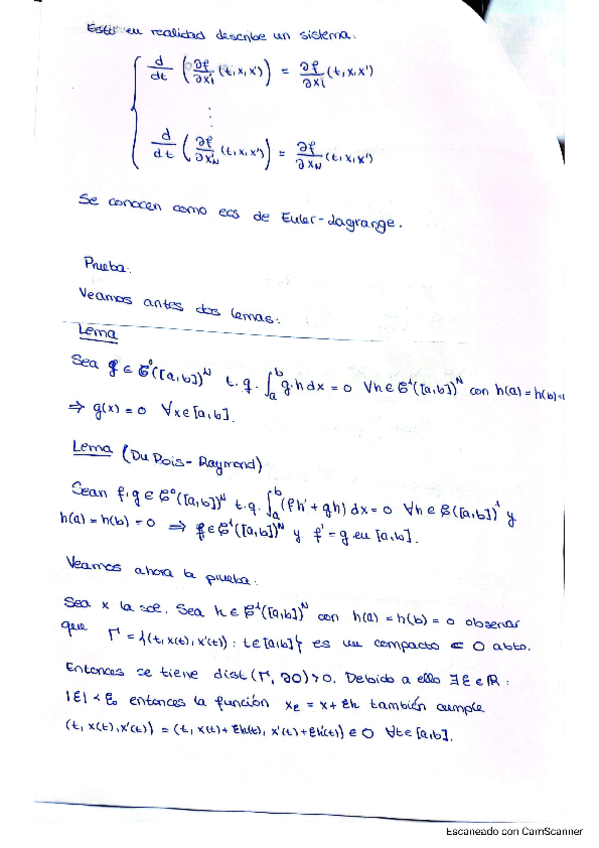 Esto en realidad describe un sistema:
d/dt (∂f/∂x'₁ (t,x,x')) = ∂f/∂x₁ (t,x,x')
⋮
d/dt (∂f/∂x'_N (t,x,x')) = ∂f/∂x_N (t,x,x')
Se conocen como ecs de Euler-Lagrange.
Prueba:
Veamos antes dos lemas:
Lema
Sea g ∈ C⁰([a,b])^N t.q. ∫_a^b g·h dx = 0 ∀h ∈ C¹([a,b])^N con h(a) = h(b) =
⇒ g(x) = 0 ∀x ∈ [a,b].
Lema (Du Bois-Raymond)
Sean f,g ∈ C⁰([a,b])^N t.q. ∫_a^b (fh' + gh) dx = 0 ∀h ∈ C([a,b])^1 y
h(a) = h(b) = 0 ⇒ f ∈ C¹([a,b])^N y f' = g en [a,b].
Veamos ahora la prueba:
Sea x la sol. Sea h ∈ C¹([a,b])^N con h(a) = h(b) = 0 observar
que Γ = {(t, x(t), x'(t)) : t ∈ [a,b]} es un compacto ⊂ O abto.
Entonces se tiene dist(Γ, ∂O) > 0. Debido a ello ∃ε ∈ ℝ :
|ε| < ε₀ entonces la función x_ε = x + εh también cumple
(t, x(t), x'(t)) = (t, x(t) + εh(t), x'(t) + εh'(t)) ∈ O ∀t ∈ [a,b].
Escaneado con CamScanner